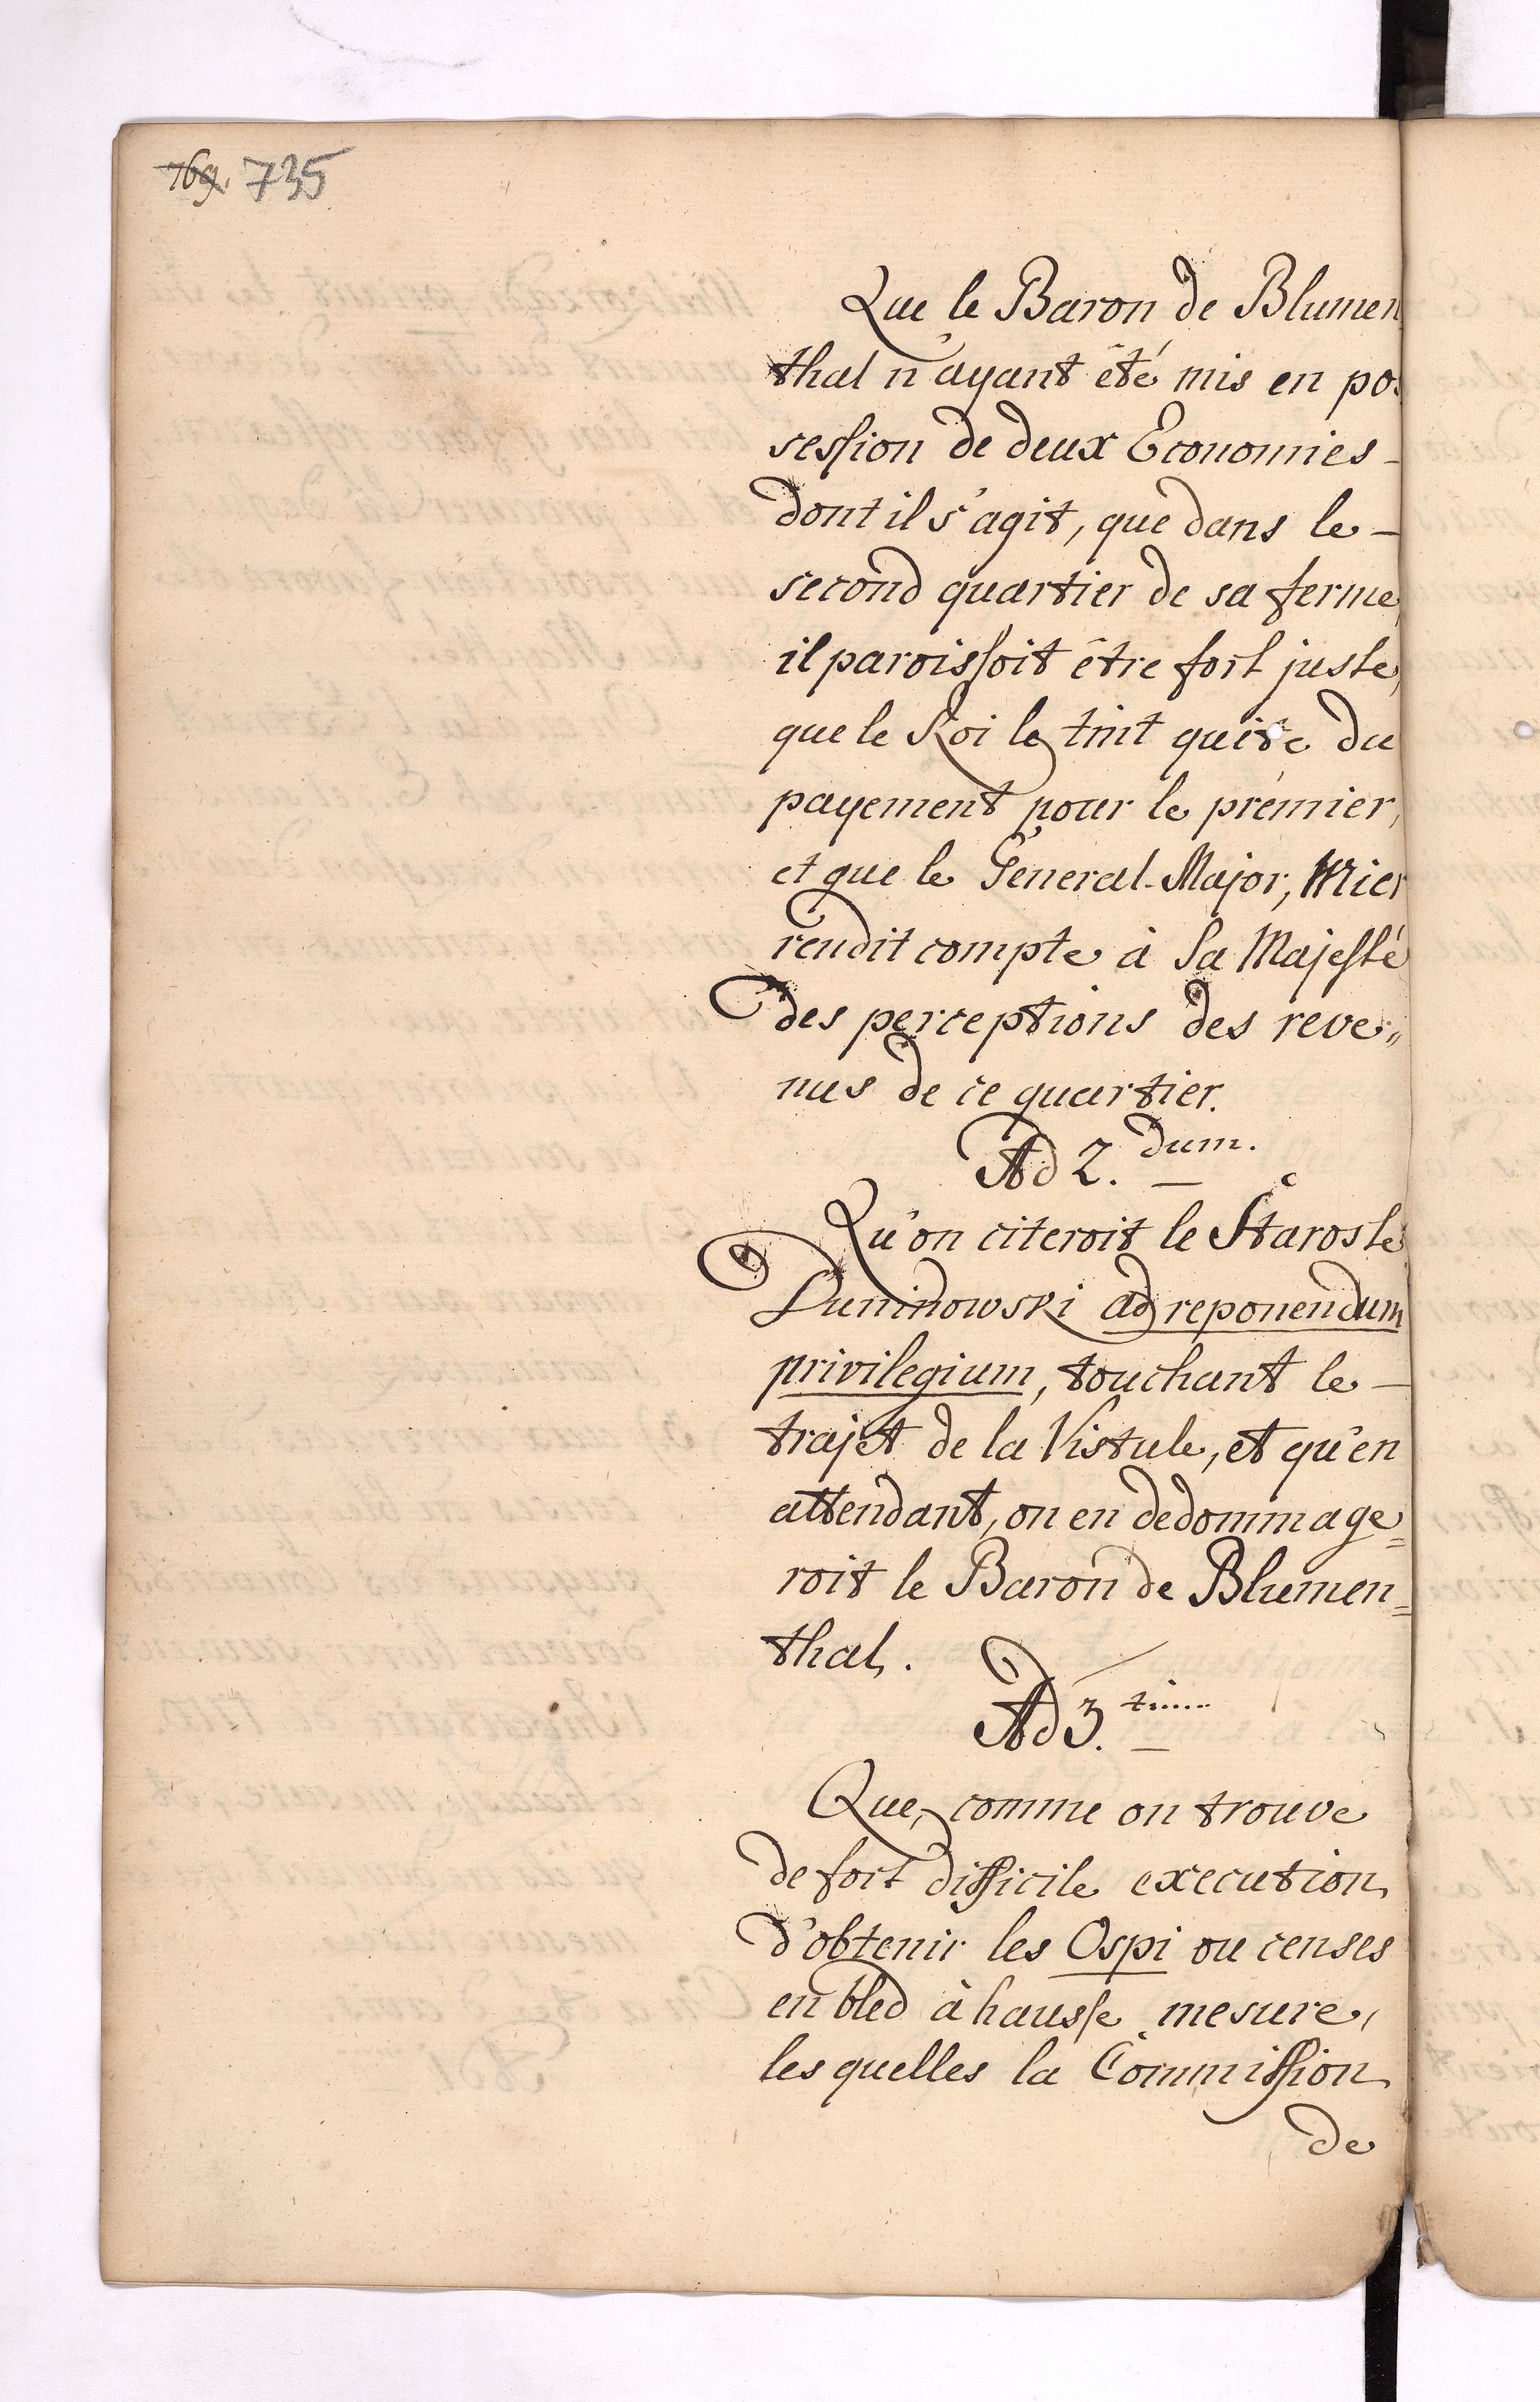 769. 735
Que le Baron de Blumen
thal n'ayant été mis en pos
session de deux Economies
dont il s'agit, que dans le
second quartier de sa ferme,
il paroissoit être fort juste,
que le Roi le tint quite du
payement pour le prémier,
et que le General-Major, Mier
rendit compte à Sa Majesté
des perceptions des reve„
nus de ce quartier.
Ad 2. dum.
Qu'on citeroit le Staroste
Duninowski ad reponendum
privilegium, touchant le
trajet de la Vistule, et qu'en
attendant, on en dedommage=
roit le Baron de Blumen=
thal.
Ad 3. tium
Que, comme on trouve
de fort difficile execution
d'obtenir les Ospi ou censes
en bled à hausse mesure,
les quelles la Commission
de